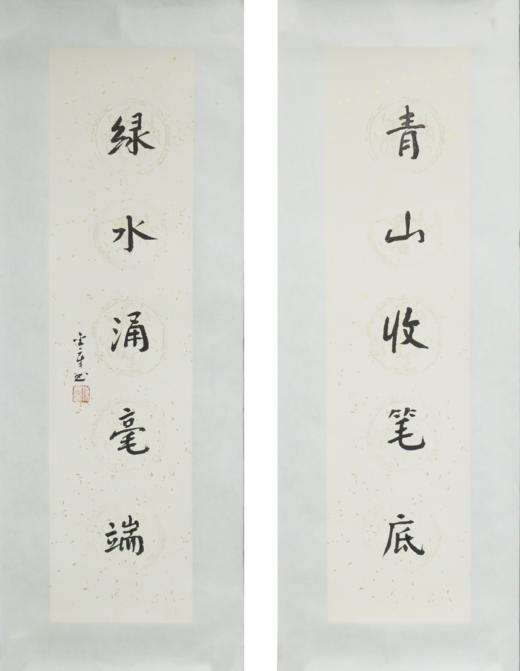 青山收笔底
绿水涌毫端